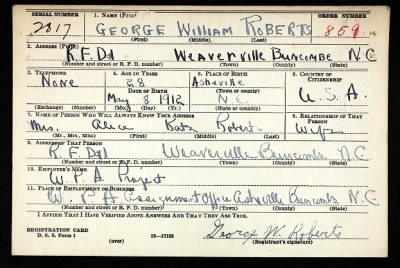 SERIAL NUMBER 1. NAME (Print) ORDER NUMBER
2817 GEORGE WILLIAM ROBERTS 859
(First) (Middle) (Last)
2. ADDRESS (Print)
R.F.D.1 Weaverville Buncombe N.C.
(Number and street or R. F. D. number) (Town) (County) (State)
3. TELEPHONE 4. AGE IN YEARS 5. PLACE OF BIRTH 6. COUNTRY OF CITIZENSHIP
None 28 Asheville
DATE OF BIRTH (Town or county)
May 8 1912 N.C. U.S.A.
(Exchange) (Number) (Mo.) (Day) (Yr.) (State or country)
7. NAME OF PERSON WHO WILL ALWAYS KNOW YOUR ADDRESS 8. RELATIONSHIP OF THAT PERSON
Mrs. Alice Roberts Wife
(Mr., Mrs., Miss) (First) (Middle) (Last)
9. ADDRESS OF THAT PERSON
R.F.D.1 Weaverville Buncombe N.C.
(Number and street or R. F. D. number) (Town) (County) (State)
10. EMPLOYER'S NAME
W.P.A. Project
11. PLACE OF EMPLOYMENT OR BUSINESS
W.P.A. Assignment Office Asheville Buncombe N.C.
(Number and street or R. F. D. number) (Town) (County) (State)
I AFFIRM THAT I HAVE VERIFIED ABOVE ANSWERS AND THAT THEY ARE TRUE.
REGISTRATION CARD
D. S. S. Form 1 16—17105 George W. Roberts
(over) (Registrant's signature)